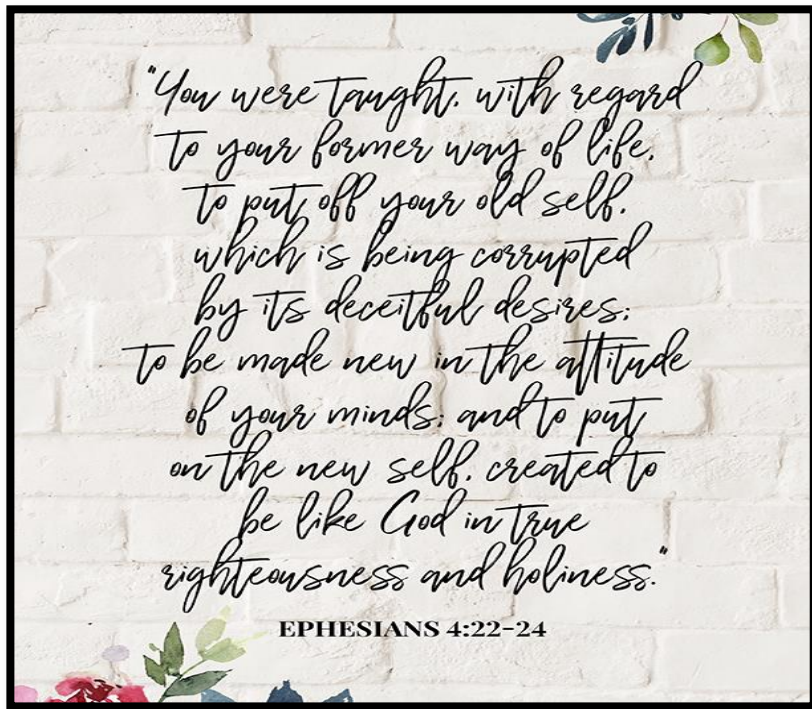 "You were taught, with regard
to your former way of life,
to put off your old self,
which is being corrupted
by its deceitful desires;
to be made new in the attitude
of your minds; and to put
on the new self, created to
be like God in true
righteousness and holiness."
EPHESIANS 4:22-24